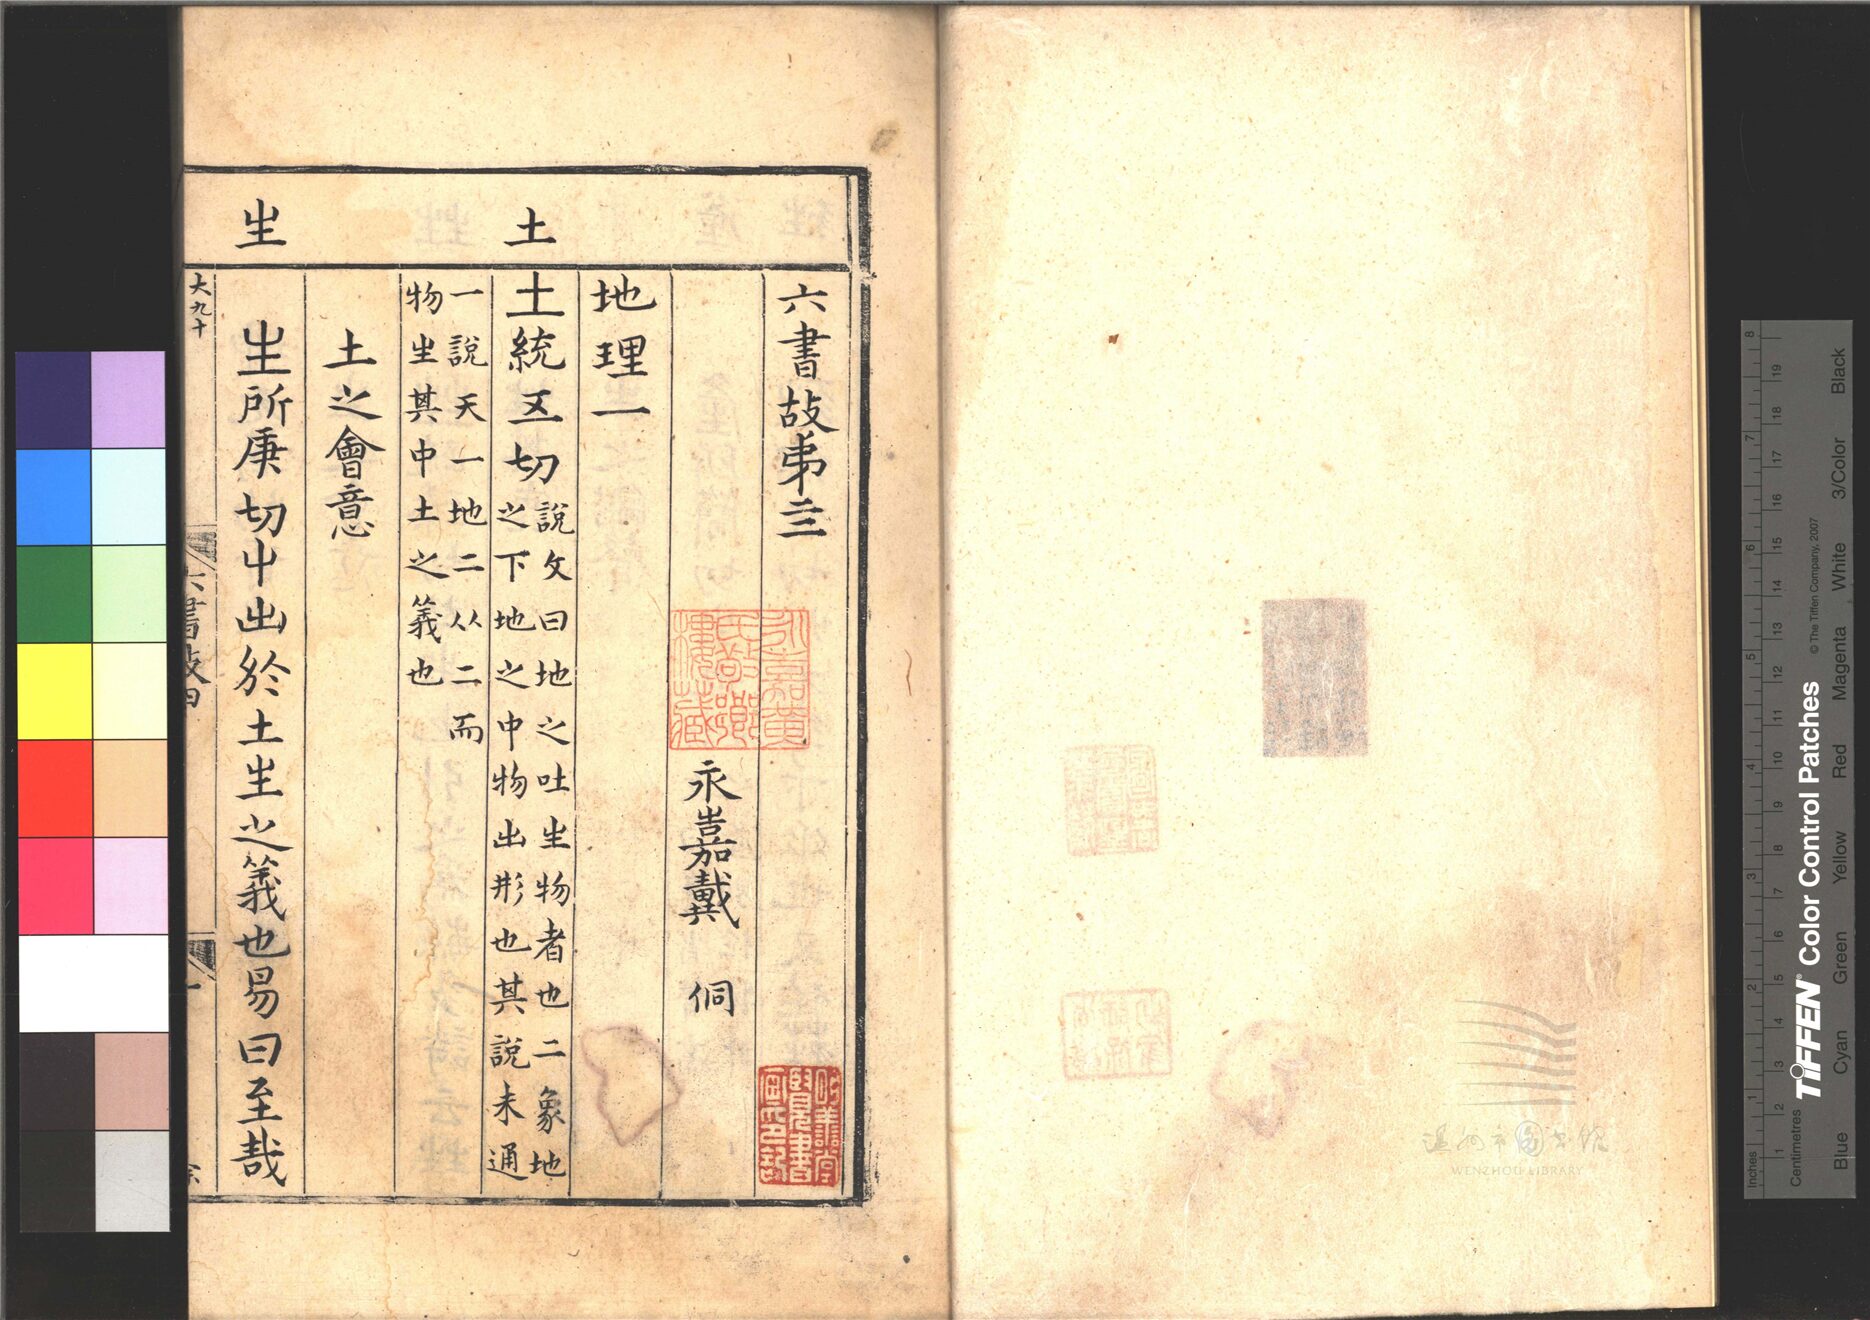 土
生
六書故弟亖
永嘉戴 侗
地理一
土統五切說文曰地之吐生物者也二象地
之下地之中物出形也其說未通
一說天一地二从二而
物生其中土之義也
土之會意
生所庚切屮出於土生之義也易曰至哉
大九十
六書故四
一
永嘉黃氏敬鄉樓藏
溫州市圖書館
WENZHOU LIBRARY
TIFFEN Color Control Patches
© The Tiffen Company, 2007
Inches 1 2 3 4 5 6 7 8
Centimetres 1 2 3 4 5 6 7 8 9 10 11 12 13 14 15 16 17 18 19
Blue Cyan Green Yellow Red Magenta White 3/Color Black